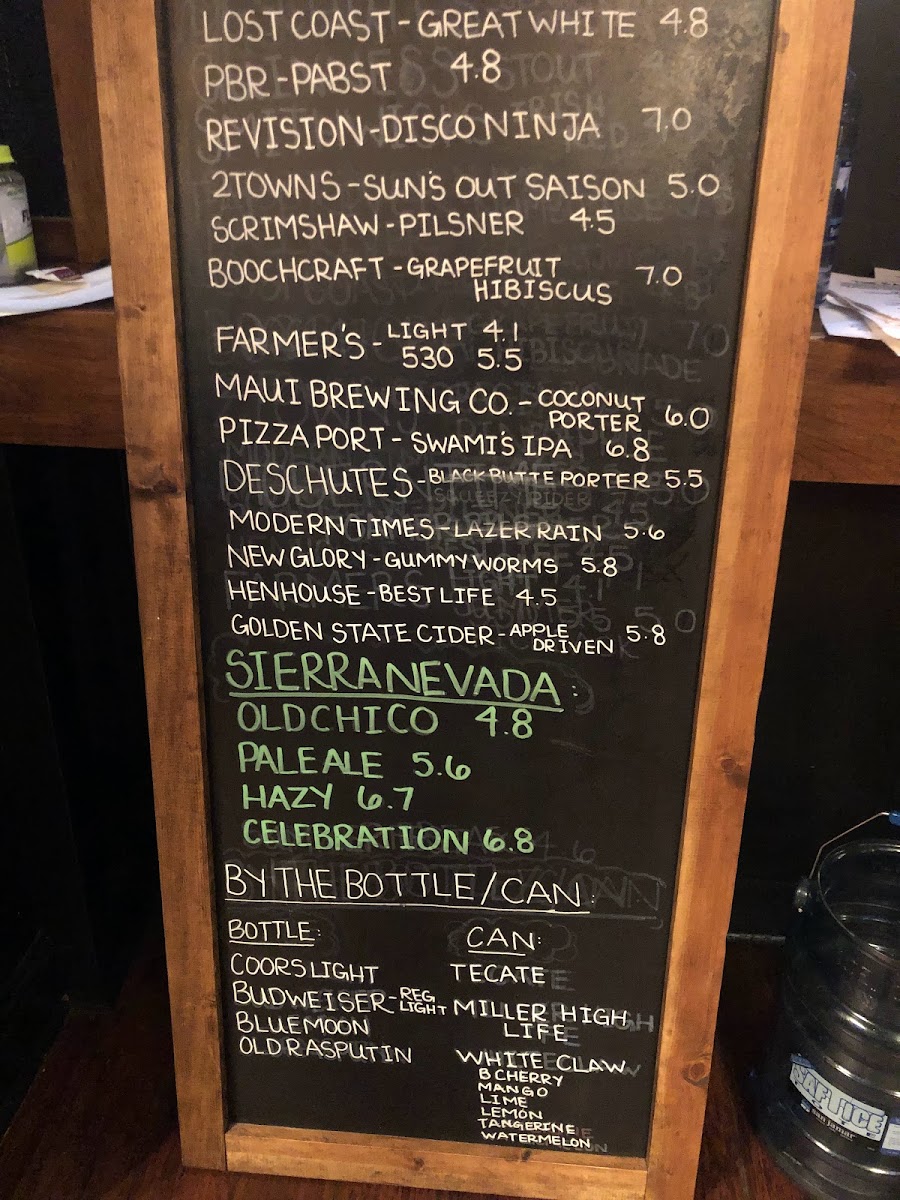 LOST COAST - GREAT WHITE 4.8
PBR - PABST 4.8
REVISION - DISCO NINJA 7.0
2TOWNS - SUN'S OUT SAISON 5.0
SCRIMSHAW - PILSNER 4.5
BOOCHCRAFT - GRAPEFRUIT HIBISCUS 7.0
FARMER'S - LIGHT 4.1
530 5.5
MAUI BREWING CO. - COCONUT PORTER 6.0
PIZZA PORT - SWAMI'S IPA 6.8
DESCHUTES - BLACK BUTTE PORTER 5.5
MODERN TIMES - LAZER RAIN 5.6
NEW GLORY - GUMMY WORMS 5.8
HENHOUSE - BEST LIFE 4.5
GOLDEN STATE CIDER - APPLE DRIVEN 5.8
SIERRA NEVADA:
OLD CHICO 4.8
PALE ALE 5.6
HAZY 6.7
CELEBRATION 6.8
BY THE BOTTLE/CAN
BOTTLE:
COORS LIGHT
BUDWEISER - REG LIGHT
BLUE MOON
OLD RASPUTIN
CAN:
TECATE
MILLER HIGH
LIFE
WHITE CLAW
B CHERRY
MANGO
LIME
LEMON
TANGERINE
WATERMELON
SAF-T-ICE
san jamar